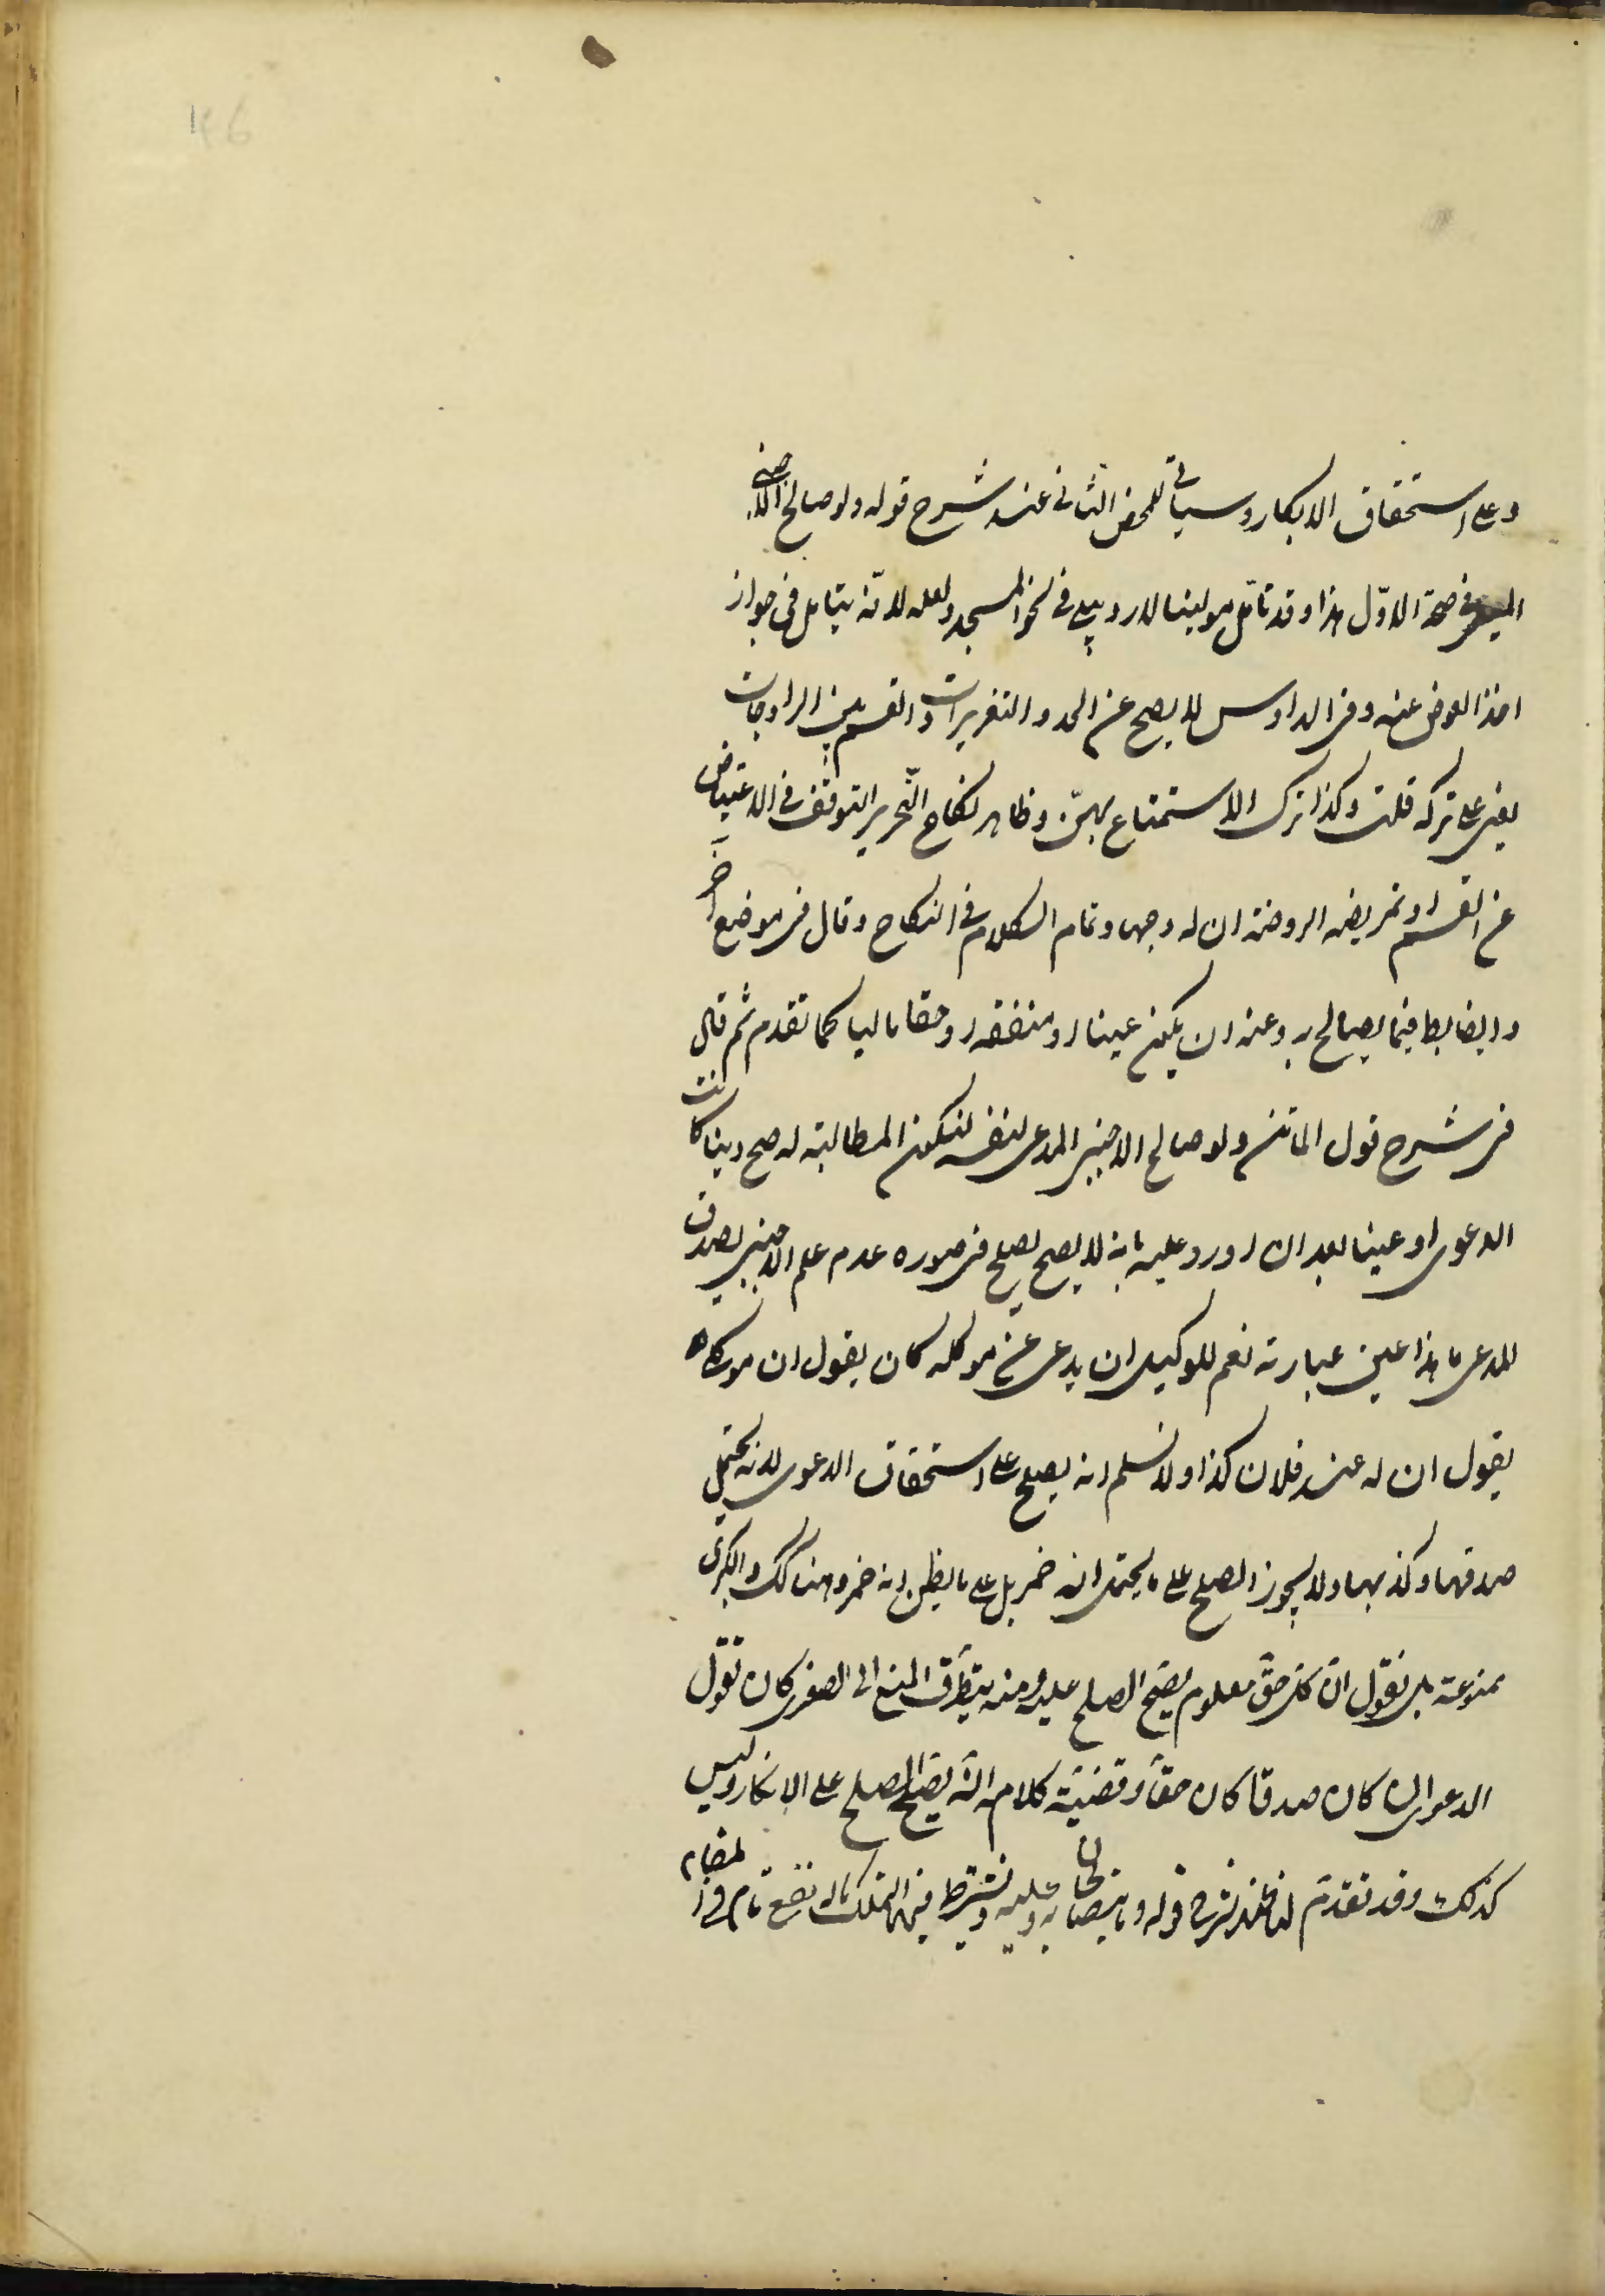 46
وعلى استحقاق الابكار وسياتي للمحض الثاني عند شرح قوله ولو صالح الاجنبي
في صحة الاوّل هذا وقد تامّل مولينا الاردبيلي في نحو المسجد ولعله لانّه يتامل في جواز
اخذ العوض عنه وفي الدروس لا يصح عن الحد والتعزيرات والقسم بين الزوجات
يعني على تركه قلت وكذا ترك الاستمتاع بهنّ وظاهر نكاح التّحرير التوقف في الاعتياض
عن القسم او تمريضه الروضة ان له وجها وتمام الكلام في النكاح وقال في موضع آخر
والضابط فيما يصالح به وعنه ان يكون عينا او منفعة او حقا ماليا كما تقدم ثم قال
في شرح قول الماتن ولو صالح الاجنبي المدعى لنفسه لتكون المطالبة له صح دينا كانت
الدعوى او عينا بعد ان اورد عليه بانه لا يصح يصلح في صورة عدم علم الاجنبي بصدق
المدعى ما هذا عين عبارته نعم للوكيل ان يدعى عن موكله كان يقول ان موكله
يقول ان له عند فلان كذا ولا نسلم انه يصلح على استحقاق الدعوى لانه يحتمل
صدقها وكذبها ولا يجوز الصلح على ما يحتمل انه خمر بل على ما يظن انه خمر وهنالك والكبرى
ممنوعة بل نقول انّ كل حقّ معلوم يصحّ الصلح عليه ومنه يتطرّق المنع الى الصغرى كان نقول
الدعوى ان كان صدقا كان حقّا وقضيّة كلامه انّه يصحّ الصلح على الانكار وليس
كذلك وقد تقدّم لنا عند شرح قوله وما يتصالحان به وعليه ويشترط فيهما التملك ماله نفع تام في المقام